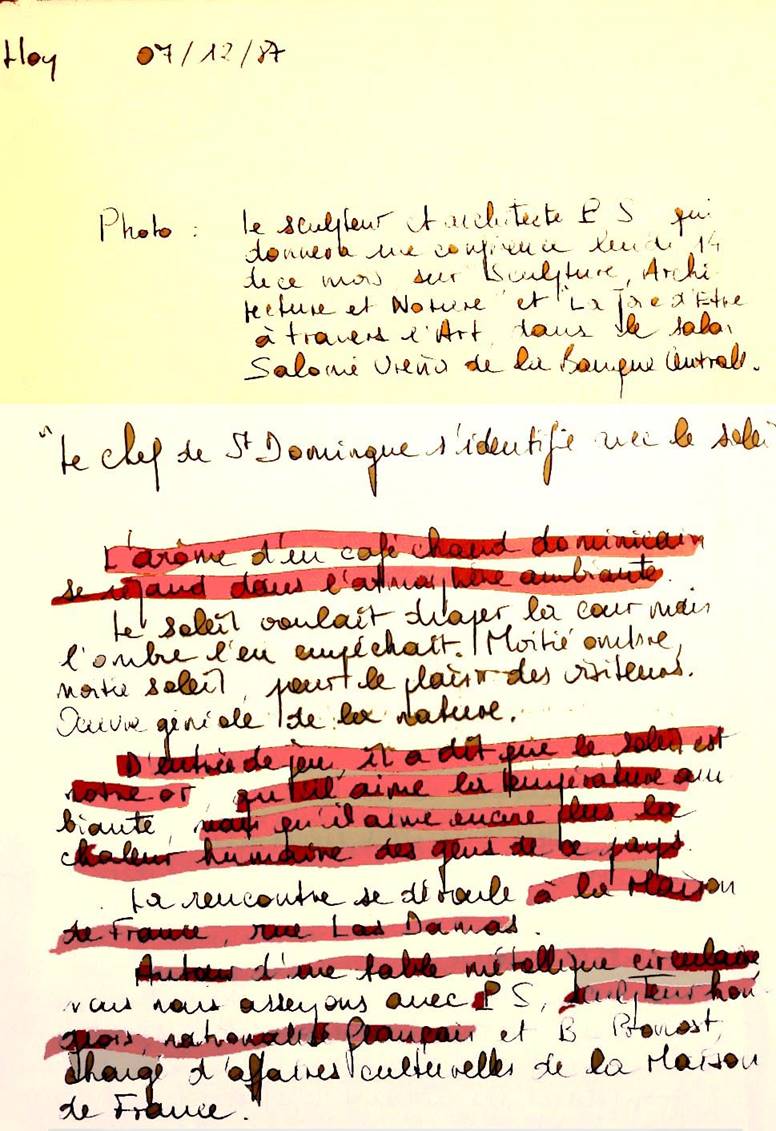 Hoy 07/12/87
Photo : Le sculpteur et architecte P S qui
donnera une conférence lundi 14
de ce mois sur Sculpture, Archi-
tecture et Nature et "La Joie d'Etre
à travers l'Art, dans le salon
Salomé Ureña de la Banque Centrale.
"Le chef de St Domingue s'identifie avec le soleil
L'arôme d'un café chaud dominicain
se répand dans l'atmosphère ambiante.
Le soleil voulait draper la cour mais
l'ombre l'en empêchait. Moitié ombre,
moitié soleil, pour le plaisir des visiteurs.
Oeuvre géniale de la nature.
D'entrée de jeu, il a dit que le soleil est
notre or, qu'il aime la température am
biante, mais qu'il aime encore plus la
chaleur humaine des gens de ce pays.
La rencontre se déroule à la Maison
de France, rue Las Damas.
Autour d'une table métallique circulaire
nous nous asseyons avec P S, sculpteur hon
grois, nationalité français et B Pronost,
chargé d'affaires culturelles de la Maison
de France.